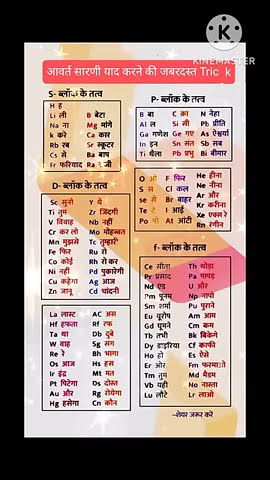 KINEMASTER
आवर्त सारणी याद करने की जबरदस्त Tric k
S- ब्लॉक के तत्व
H ह
Li ली B बेटा
Na ना Mg मांगे
k करे Ca कार
Rb रब Sr स्कूटर
Cs से Ba बाप
Fr फरियाद Ra जी
P- ब्लॉक के तत्व
B बा C का N नेहा
Al ल Si सी Pb प्रीति
Ga गणेश Ge गए As ऐश्वर्या
In इन Sn संत Sb सब
Ti थैला Pb प्रभु Bi बीमार
O ओ F फिर He हीना
S स Cl कल Ne नीना
Se से Br बाहर Ar और
Te टे I आई Kr करीना
Po पो At ऑंटी Xe एक्स रे
Rn रंगीन
D- ब्लॉक के तत्व
Sc सुनो Y ये
Ti तुम Zr जिंदगी
V विवाह Nb नहीं
Cr कर लो Mo मोहब्बत
Mn मुझसे Tc तुम्हारी
Fe फिर Ru रो
Co कोई Rh रो कर
Ni नहीं Pd पुकारेगी
Cu कहेगा Ag आज
Zn जानू Cd चांदनी
La लास्ट AC अस
Hf हफ्ता Rf रफ
Ta था Db दुबे
W वाह Sg संग
Re रे Bh भागा
Os आज Hs हस
Ir इंद्र Mt मत
Pt पिटेगा Ds दोस्त
Au और Rg रोयेगा
Hg हसेगा Cn कौन
f- ब्लॉक के तत्व
Ce सीता Th थोड़ा
Pr प्रसाद Pa पापड़
Nd एंड U और
Pm पूनम Np नापो
Sm शर्मा Pu पुराने
Eu यूरोप Am आम
Gd घूमने Cm कम
Tb तभी BK बिकेंगे
Dy डाइरिया Cf काफी
Ho हो Es ऐसे
Er ओर Fm
Tm तुम Md मैडम
Vb यही No नास्ता
Lu लौटे Lr लाओ
--शेयर जरूर करें